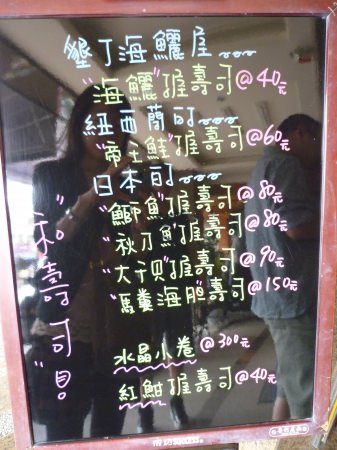 墾丁海鱺屋~~~
"海鱺"握壽司@40元
紐西蘭的~~~
"帝王鮭"握壽司@60元
日本的~~~
"鰤魚"握壽司@80元
"秋刀魚"握壽司@80元
"大干貝"握壽司@90元
"馬糞海胆"壽司@150元
水晶小卷@300元
紅魽握壽司@40元
"和壽司"